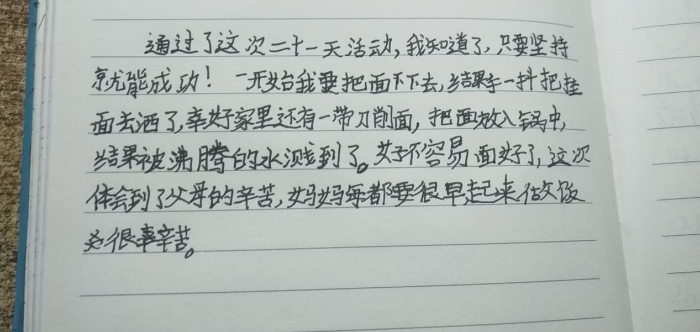 通过了这次二十一天活动，我知道了，只要坚持
就能成功！一开始我要把面下下去，结果手一抖把挂
面去洒了，幸好家里还有一带刀削面，把面放入锅中，
结果被沸腾的水溅到了。好不容易面好了，这次
体会到了父母的辛苦，妈妈每都要很早起来做饭
必很事辛苦。